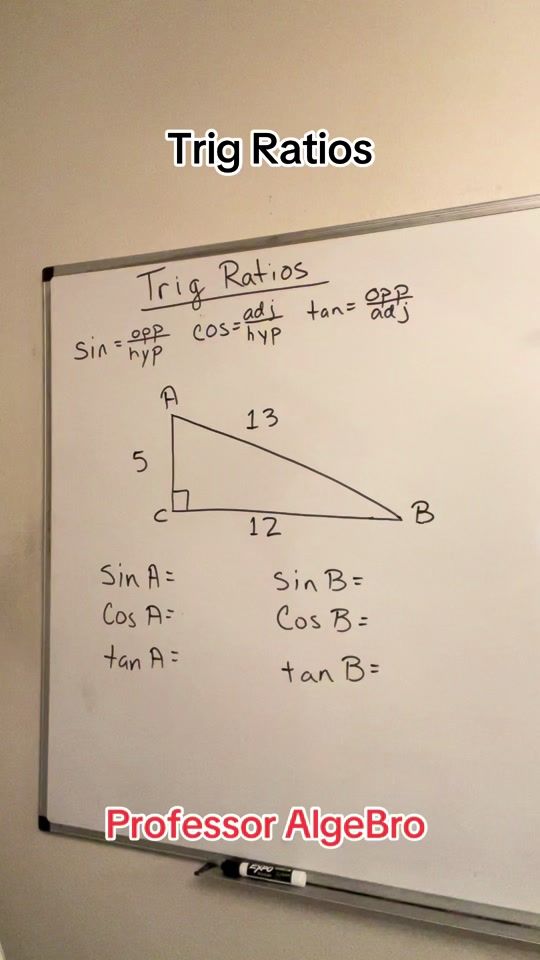 Trig Ratios
Trig Ratios
sin = opp/hyp cos = adj/hyp tan = opp/adj
A
13
5
C
12
B
sin A = sin B =
cos A = cos B =
tan A = tan B =
Professor AlgeBro
EXPO